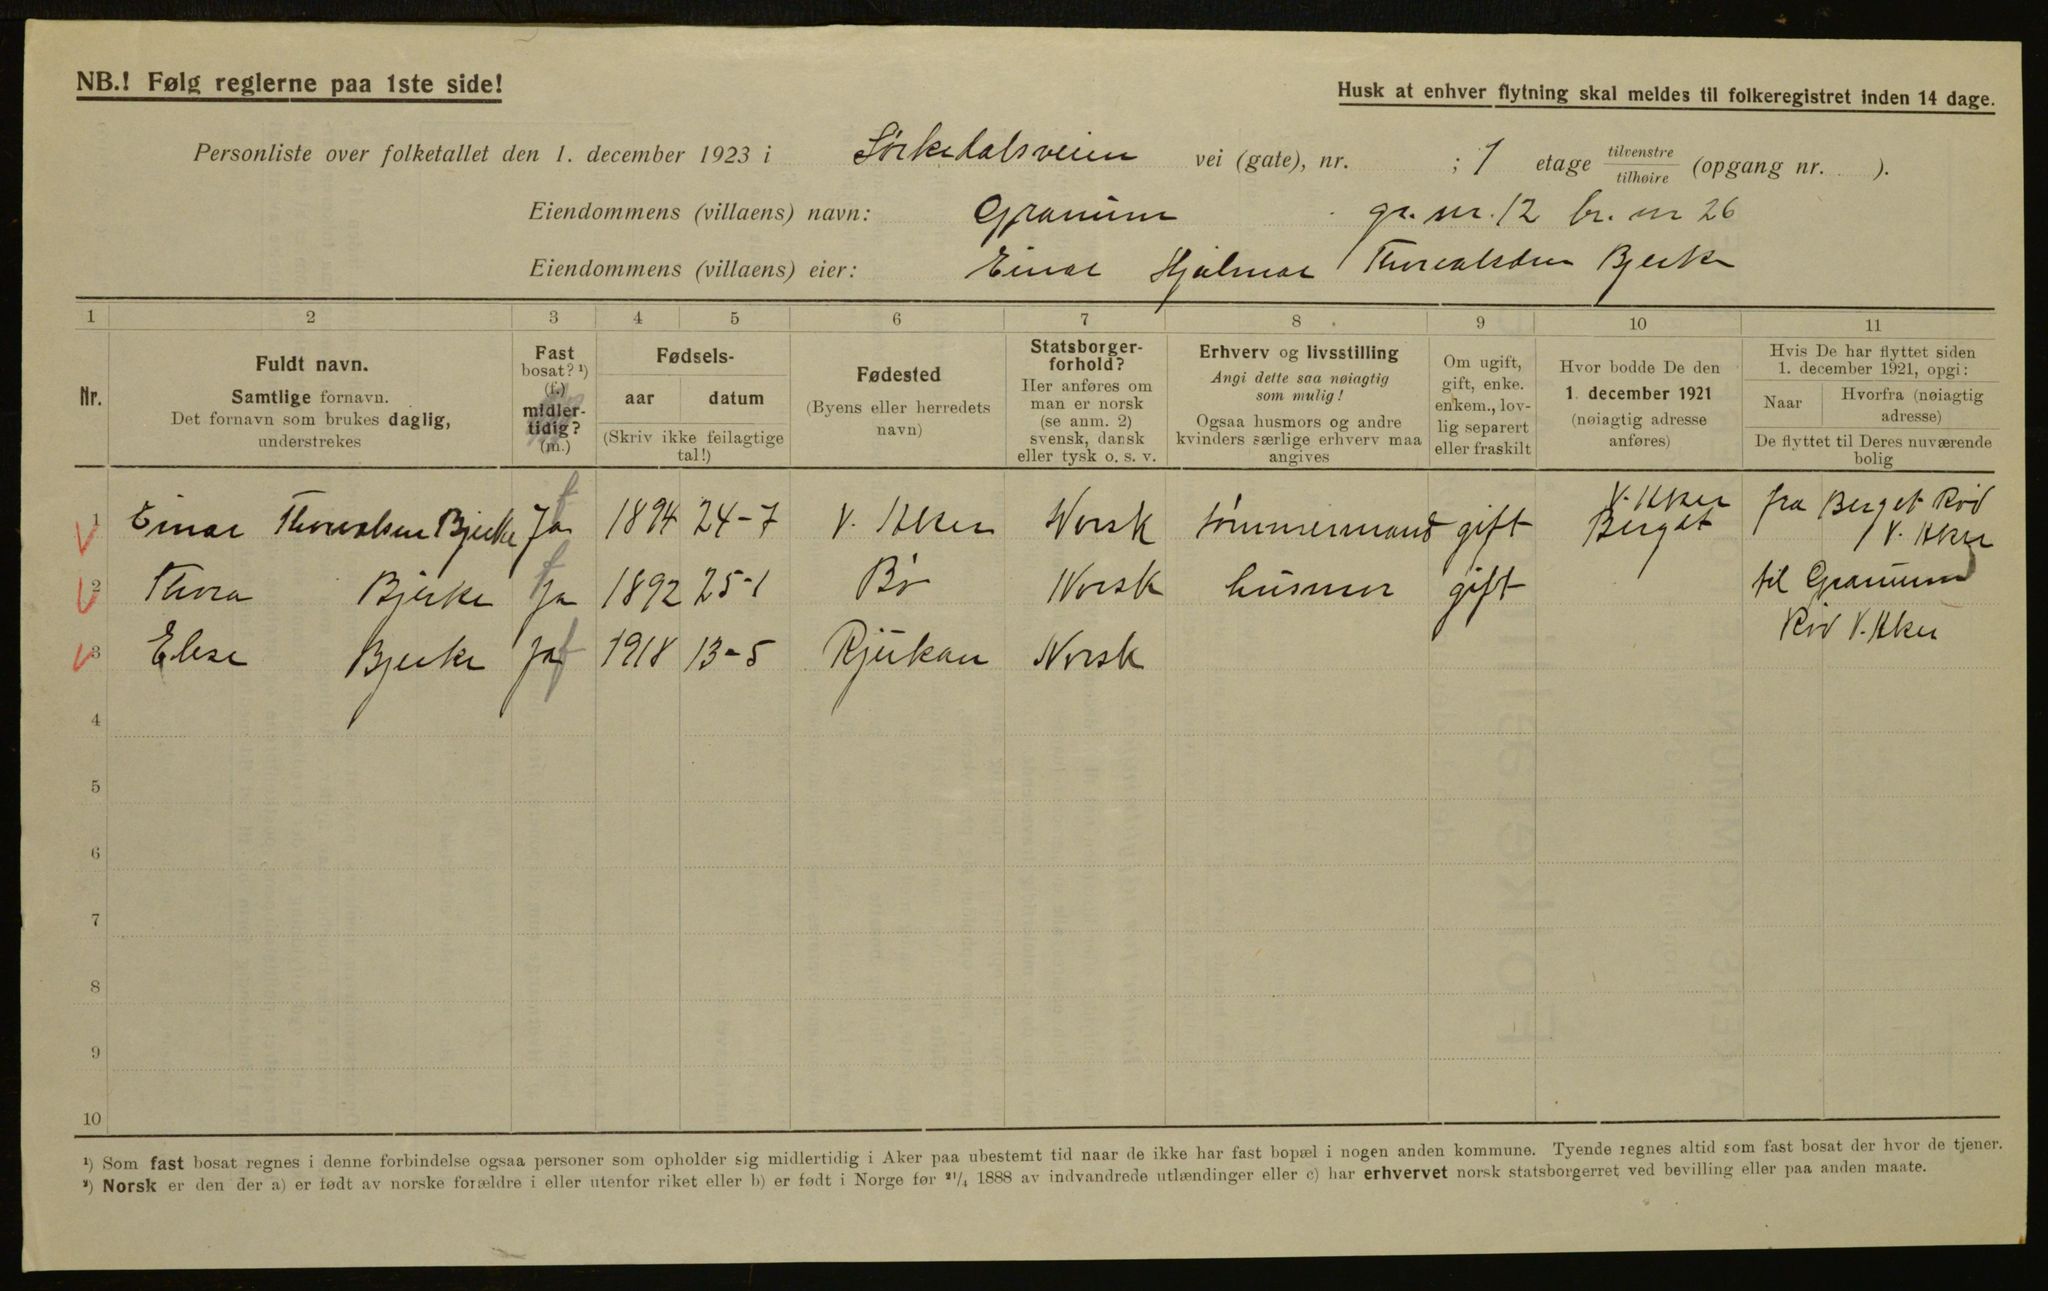 NB.! Følg reglerne paa 1ste side!
Husk at enhver flytning skal meldes til folkeregistret inden 14 dage.
Personliste over folketallet den 1. december 1923 i Sørkedalsveien vei (gate), nr. ; 1 etage tilvenstre/tilhøire (opgang nr. ).
Eiendommens (villaens) navn: Granum gr. nr. 12 br. nr 26
Eiendommens (villaens) eier: Einar Hjalmar Thorvalsdsen Bjerke
1 2 3 4 5 6 7 8 9 10 11
Nr.
Fuldt navn.
Samtlige fornavn.
Det fornavn som brukes daglig,
understrekes
Fast
bosat? ¹)
(f.)
midler-
tidig?
(m.)
Fødsels-
aar datum
(Skriv ikke feilagtige
tal!)
Fødested
(Byens eller herredets
navn)
Statsborger-
forhold?
Her anføres om
man er norsk
(se anm. 2)
svensk, dansk
eller tysk o. s. v.
Erhverv og livsstilling
Angi dette saa nøiagtig
som mulig!
Ogsaa husmors og andre
kvinders særlige erhverv maa
angives
Om ugift,
gift, enke.
enkem., lov-
lig separert
eller fraskilt
Hvor bodde De den
1. december 1921
(nøiagtig adresse
anføres)
Hvis De har flyttet siden
1. december 1921, opgi:
Naar
Hvorfra (nøiagtig
adresse)
De flyttet til Deres nuværende
bolig
1 Einar Thorvalsen Bjerke Ja f 1894 24-7 V. Aker Norsk tømmermand gift V. Aker Berget fra Berget Rød
V. Aker
2 Thora Bjerke Ja f 1892 25-1 Bø Norsk husmor gift til Granum
Rød V. Aker
3 Else Bjerke Ja f 1918 13-5 Rjukan Norsk
4
5
6
7
8
9
10
¹) Som fast bosat regnes i denne forbindelse ogsaa personer som opholder sig midlertidig i Aker paa ubestemt tid naar de ikke har fast bopæl i nogen anden kommune. Tyende regnes altid som fast bosat der hvor de tjener.
²) Norsk er den der a) er født av norske forældre i eller utenfor riket eller b) er født i Norge før ²¹/₄ 1888 av indvandrede utlændinger eller c) har erhvervet norsk statsborgerret ved bevilling eller paa anden maate.